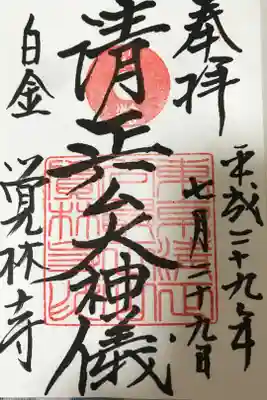 奉拝
平成二十九年
七月二十九日
清正公大神儀
白金
覚林寺